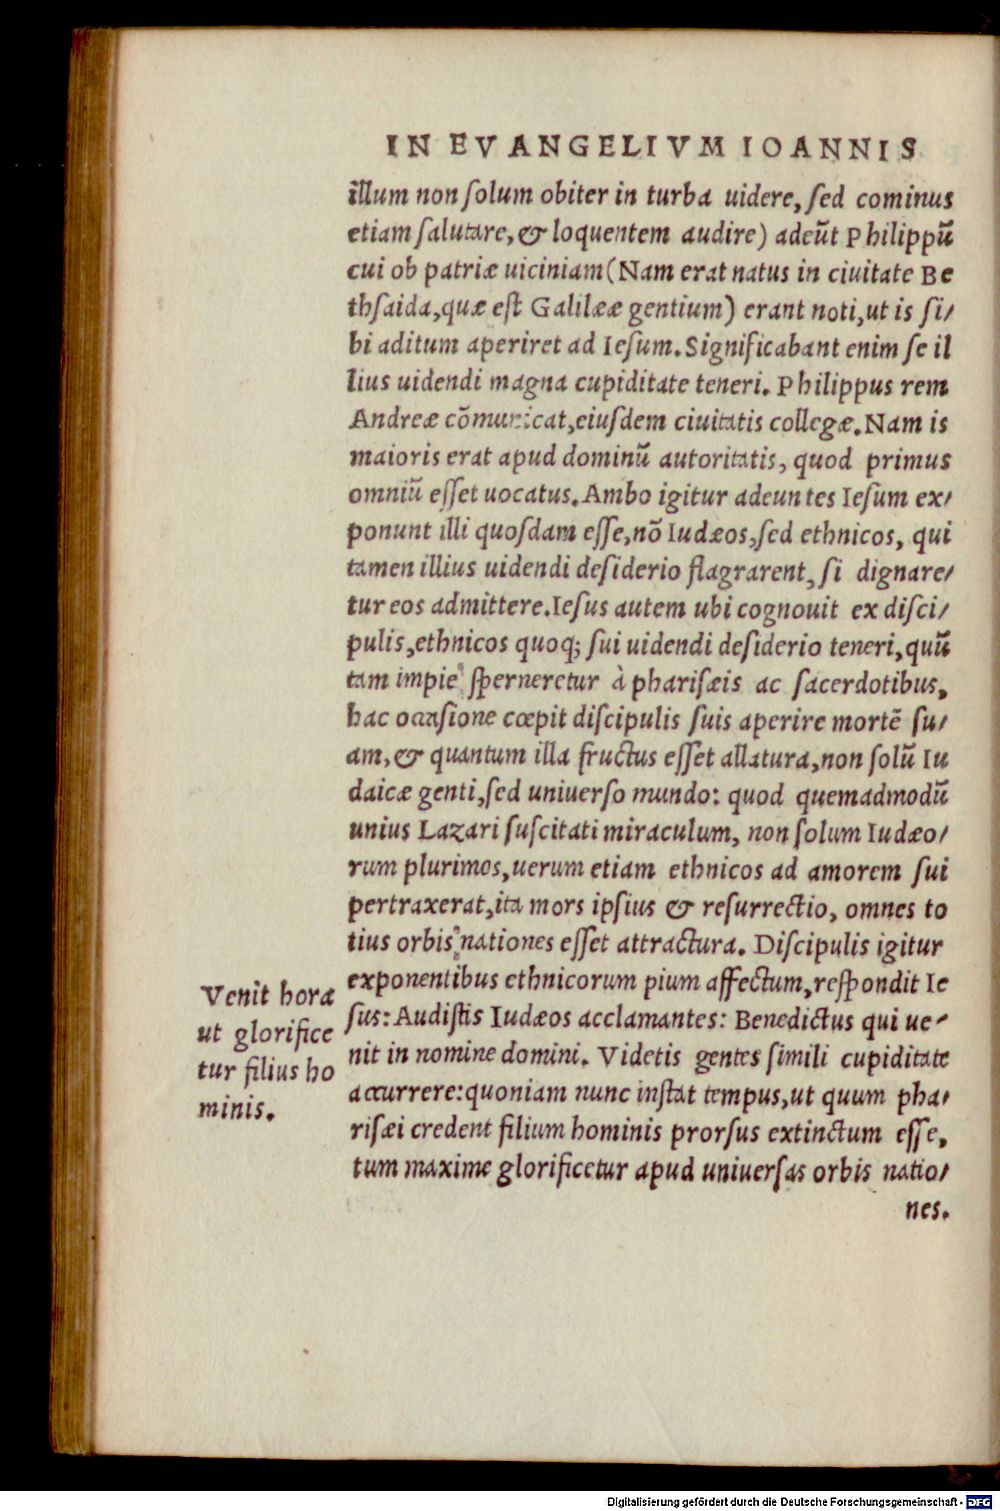 IN EVANGELIVM IOANNIS
illum non ſolum obiter in turba uidere, ſed cominus
etiam ſalutare, & loquentem audire) adeūt Philippū
cui ob patriæ uiciniam (Nam erat natus in ciuitate Be
thſaida, quæ eſt Galilææ gentium) erant noti, ut is ſi/
bi aditum aperiret ad Ieſum. Significabant enim ſe il
lius uidendi magna cupiditate teneri. Philippus rem
Andreæ cōmunicat, eiuſdem ciuitatis collegæ. Nam is
maioris erat apud dominū autoritatis, quod primus
omniū eſſet uocatus. Ambo igitur adeuntes Ieſum ex/
ponunt illi quoſdam eſſe, nō Iudæos, ſed ethnicos, qui
tamen illius uidendi deſiderio flagrarent, ſi dignare/
tur eos admittere. Ieſus autem ubi cognouit ex diſci/
pulis, ethnicos quoq; ſui uidendi deſiderio teneri, quū
tam impie ſperneretur à phariſæis ac ſacerdotibus,
hac occaſione cœpit diſcipulis ſuis aperire mortē ſu/
am, & quantum illa fructus eſſet allatura, non ſolū Iu
daicæ genti, ſed uniuerſo mundo: quod quemadmodū
unius Lazari ſuſcitati miraculum, non ſolum Iudæo/
rum plurimos, uerum etiam ethnicos ad amorem ſui
pertraxerat, ita mors ipſius & reſurrectio, omnes to
tius orbis nationes eſſet attractura. Diſcipulis igitur
exponentibus ethnicorum pium affectum, reſpondit Ie
ſus: Audiſtis Iudæos acclamantes: Benedictus qui ue-
nit in nomine domini. Videtis gentes ſimili cupiditate
accurrere: quoniam nunc inſtat tempus, ut quum pha/
riſæi credent filium hominis prorſus extinctum eſſe,
tum maxime glorificetur apud uniuerſas orbis natio/
nes.
Venit hora
ut glorifice
tur filius ho
minis.
Digitalisierung gefördert durch die Deutsche Forschungsgemeinschaft - DFG